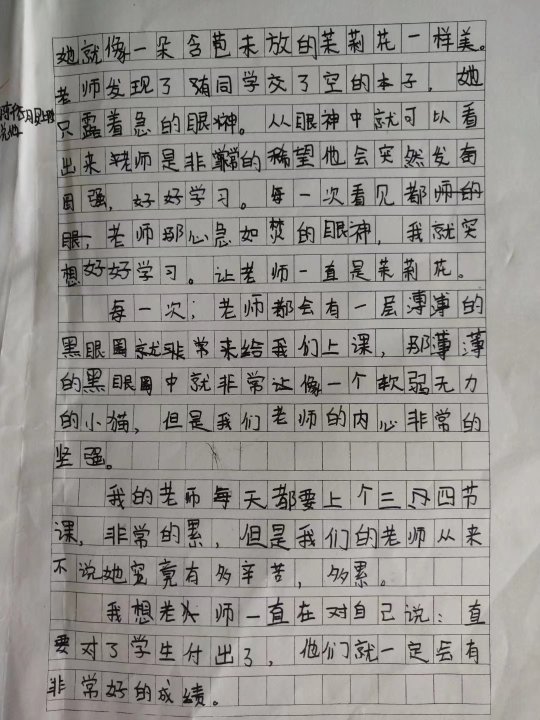 她就像一朵含苞未放的茉莉花一样美。
老师发现了随同学交了空的本子，她
只露着急的眼神。从眼神中就可以看
出来老师是非常的稀望他会突然发奋
图强，好好学习。每一次看见都师的
眼，老师那心急如焚的眼神，我就突
想好好学习。让老师一直是茉莉花。
每一次；老师都会有一层薄薄的
黑眼圈就非常来给我们上课，那薄薄
的黑眼圈中就非常让像一个软弱无力
的小猫，但是我们老师的内心非常的
坚强。
我的老师每天都要上个三四节
课，非常的累，但是我们的老师从来
不说她究竟有多辛苦，多累。
我想老师一直在对自己说：直
要对了学生付出了，他们就一定会有
非常好的成绩。